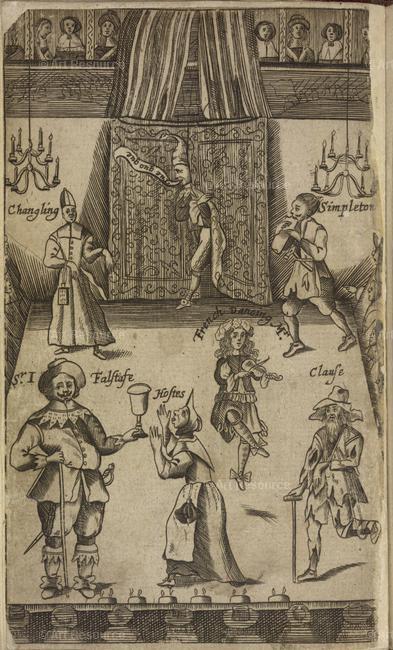 Changling
Simpleton
French Dancing Mr.
Sr. I Falſtafe
Hoſtes
Clauſe
©Art Resource
©Art Resource
Art Resource
Art Resource
©Art Resource
©Art Resource